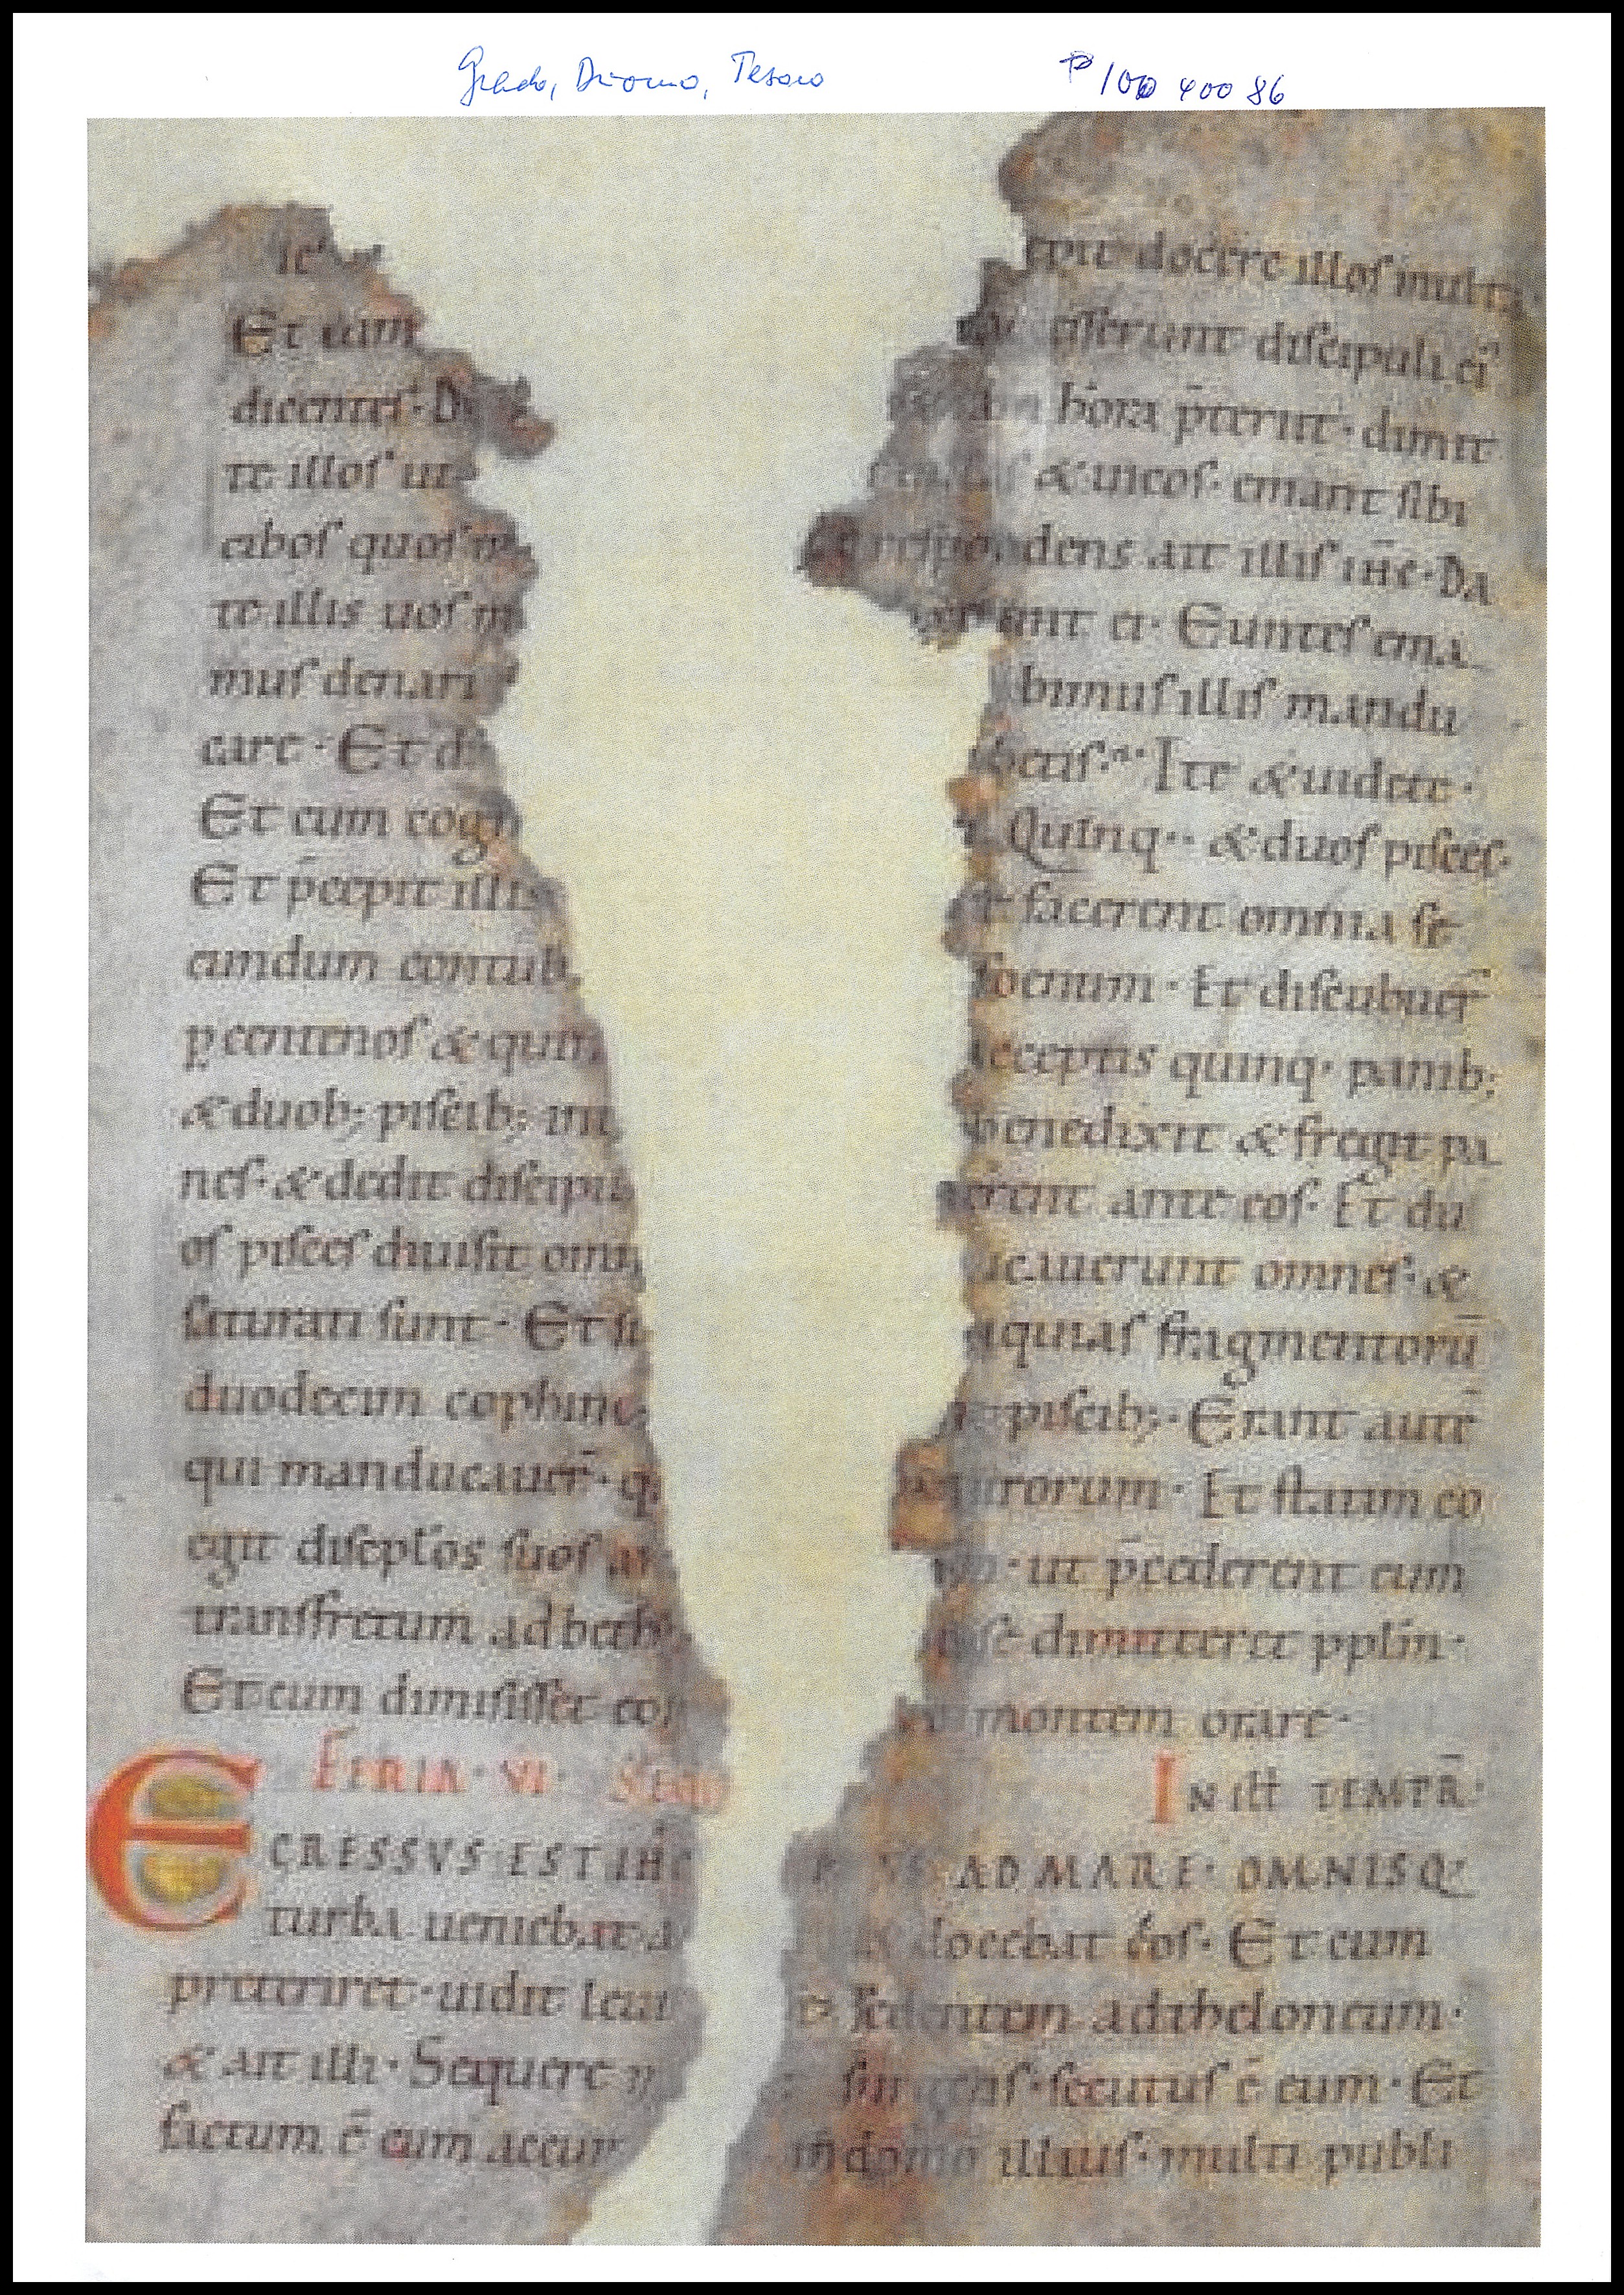 Grado, Duomo, Tesoro P 100 400 86
docere illos multa
Et cum discipuli ei
dicentes· hora p̄teriit· dimit
te illos ut & uicos· emant sibi
cibos quos dens ait illis ih̄c· Da
te illis uos ei· Euntes ema
mus denari bimus illis mandu
care· Et d betis· Ite & uidete·
Et cum cogn Quinq·· & duos pisces·
Et p̄cepit illis facerent omnia sc̄
cundum contub foenum· Et discubuer̄
p centenos & quin acceptis quinq· panib;
& duob; piscib; in benedixit & fregit pa
nes· & dedit discipu erent ante eos· Et du
os pisces diuisit omn ucauerunt omnes· &
saturati sunt· Et su iquias fragmentorū
duodecim cophino piscib;· Erant autē
qui manducauer̄· q uirorum· Et statim co
egit discipl'os suos as ut p̄cederent eum
transfretum ad beth ipse dimitteret pplm·
Et cum dimisisset eos montem orare·
Feria· vi· In ill̄ temp̄r·
Egressvs est ih̄c ad mare· omnisq·
turba ueniebat a docebat eos· Et cum
preteriret· uidit leui sedentem ad theloneum·
& ait illi· Sequere m surgens· secutus ē eum· Et
factum ē cum accum in domo illius· multi publi